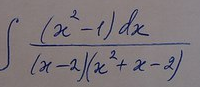 ∫ (x² − 1) dx / (x − 2)(x² + x − 2)